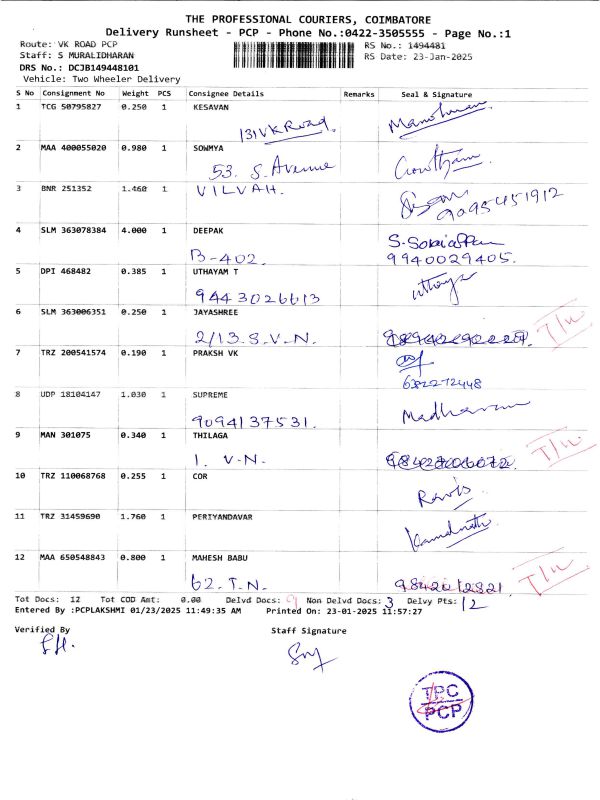 THE PROFESSIONAL COURIERS, COIMBATORE
Delivery Runsheet - PCP - Phone No.:0422-3505555 - Page No.:1
Route: VK ROAD PCP
RS No.: 1494481
Staff: S MURALIDHARAN
RS Date: 23-Jan-2025
DRS No.: DCJB149448101
Vehicle: Two Wheeler Delivery
S No Consignment No Weight PCS Consignee Details Remarks Seal & Signature
1 TCG 50795827 0.250 1 KESAVAN
131 VK Road Manoharan
2 MAA 400055020 0.980 1 SOWMYA
53. S. Avenue Gowtham
3 BNR 251352 1.460 1 VILVAH.
9095451912
4 SLM 363078384 4.000 1 DEEPAK
B-402. 9940029405.
5 DPI 468482 0.385 1 UTHAYAM T
9443026613 uthaya
6 SLM 363006351 0.250 1 JAYASHREE
2/13.S.V.N. T/N
7 TRZ 200541574 0.190 1 PRAKSH VK
6382272448
8 UDP 18104147 1.030 1 SUPREME
9094137531. Madhavan
9 MAN 301075 0.340 1 THILAGA
1. V.N. T/N
10 TRZ 110068768 0.255 1 COR
Ravis
11 TRZ 31459690 1.760 1 PERIYANDAVAR
12 MAA 650548843 0.800 1 MAHESH BABU
62. T.N. 9842012821 T/N
Tot Docs: 12 Tot COD Amt: 0.00 Delvd Docs: 9 Non Delvd Docs: 3 Delvy Pts: 12
Entered By :PCPLAKSHMI 01/23/2025 11:49:35 AM Printed On: 23-01-2025 11:57:27
Verified By
Staff Signature
TPC
PCP